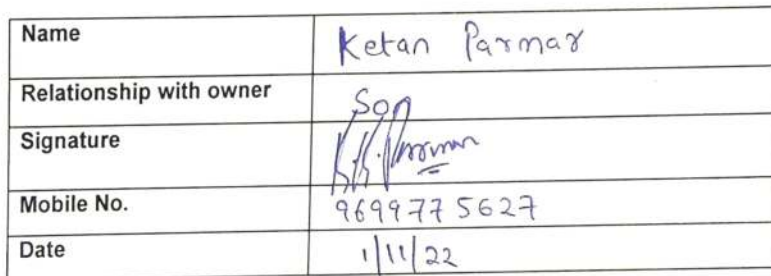 Name Ketan Parmar
Relationship with owner Son
Signature K.K. Parmar
Mobile No. 9699775627
Date 1/11/22